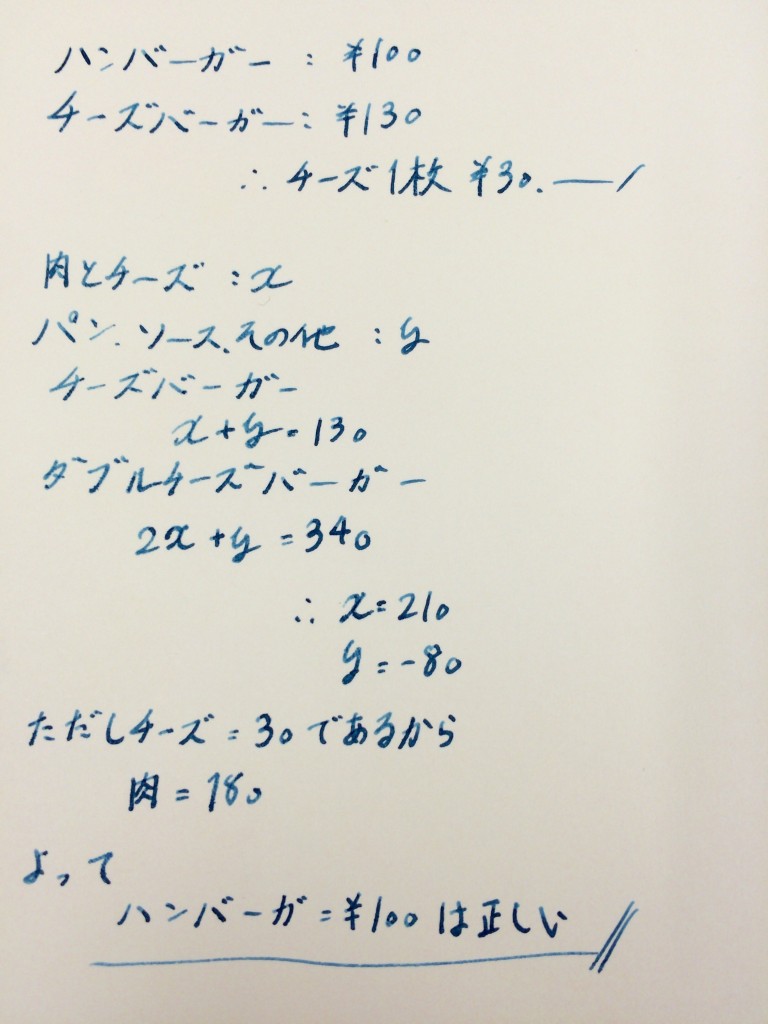 ハンバーガー : ¥100
チーズバーガー : ¥130
∴ チーズ1枚 ¥30.
肉とチーズ : x
パン、ソース、その他 : y
チーズバーガー
x+y=130
ダブルチーズバーガー
2x+y=340
∴ x=210
y=-80
ただしチーズ=30であるから
肉=180
よって
ハンバーガ=¥100は正しい